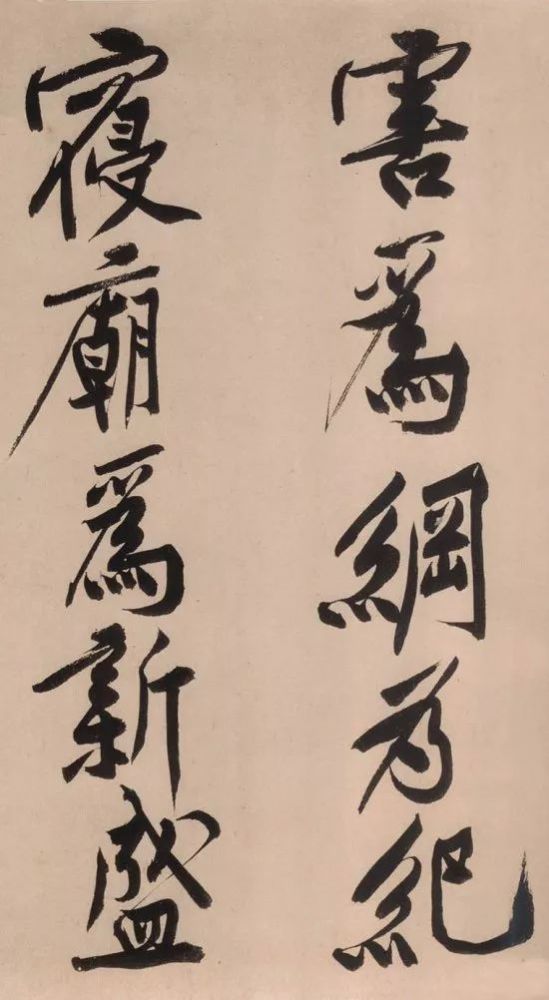 害爲綱為紀
寢廟爲新盛